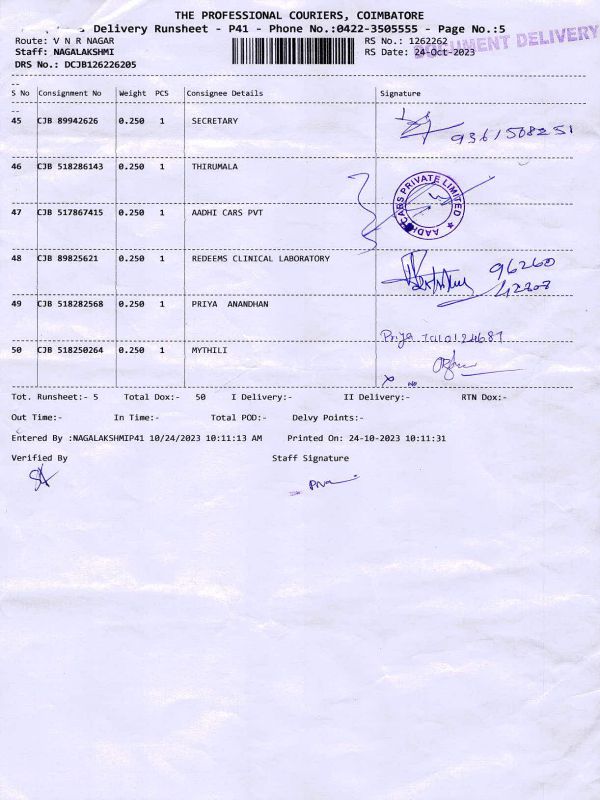 THE PROFESSIONAL COURIERS, COIMBATORE
Delivery Runsheet - P41 - Phone No.:0422-3505555 - Page No.:5
Route: V N R NAGAR RS No.: 1262262
DOCUMENT DELIVERY
Staff: NAGALAKSHMI RS Date: 24-Oct-2023
DRS No.: DCJB126226205
S No Consignment No Weight PCS Consignee Details Signature
45 CJB 89942626 0.250 1 SECRETARY
9361508251
46 CJB 518286143 0.250 1 THIRUMALA
AADHI CARS PRIVATE LIMITED
47 CJB 517867415 0.250 1 AADHI CARS PVT
48 CJB 89825621 0.250 1 REDEEMS CLINICAL LABORATORY
96260
49 CJB 518282568 0.250 1 PRIYA ANANDHAN
Priya
50 CJB 518250264 0.250 1 MYTHILI
Tot. Runsheet:- 5 Total Dox:- 50 I Delivery:- II Delivery:- RTN Dox:-
Out Time:- In Time:- Total POD:- Delvy Points:-
Entered By :NAGALAKSHMIP41 10/24/2023 10:11:13 AM Printed On: 24-10-2023 10:11:31
Verified By Staff Signature